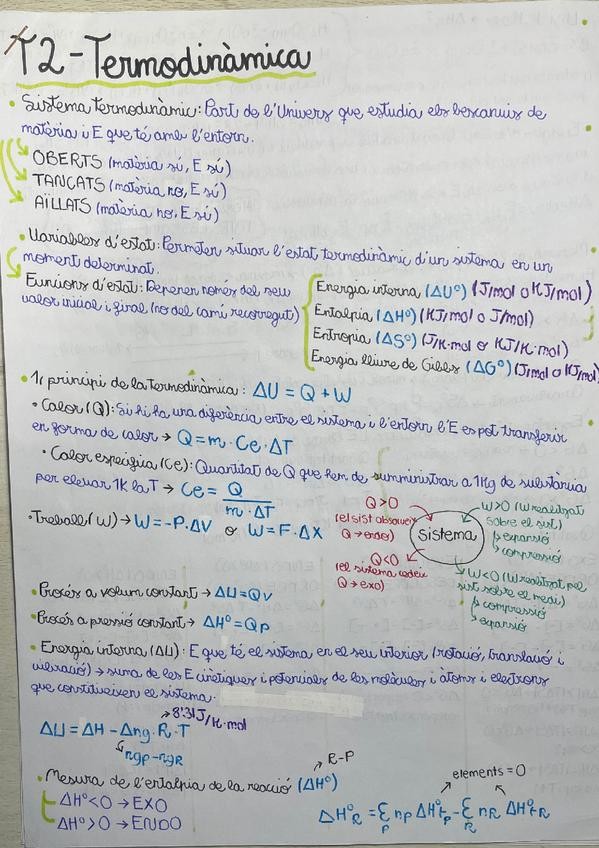 T2-Termodinàmica
• Sistema termodinàmic: Part de l'Univers que estudia els bescanvis de
matèria i E que té amb l'entorn.
OBERTS (matèria sí, E sí)
TANCATS (matèria no, E sí)
AÏLLATS (matèria no, E sí)
• Variables d'estat: Permeten situar l'estat termodinàmic d'un sistema en un
moment determinat.
Funcions d'estat: Depenen només del seu
valor inicial i final (no del camí recorregut)
Energia interna (ΔU°) (J/mol o KJ/mol)
Entalpia (ΔH°) (KJ/mol o J/mol)
Entropia (ΔS°) (J/K·mol o KJ/K·mol)
Energia lliure de Gibbs (ΔG°) (J/mol o KJ/mol)
• 1r principi de la termodinàmica: ΔU = Q + W
• Calor (Q): Si hi ha una diferència entre el sistema i l'entorn l'E es pot transferir
en forma de calor → Q = m · Ce · ΔT
• Calor específica (Ce): Quantitat de Q que hem de sumministrar a 1Kg de substància
per elevar 1K la T → Ce = Q / m · ΔT
• Treball (W) → W = -P·ΔV o W = F·ΔX
Q>0
(el sist absorveix
Q → endo)
Q<0
(el sistema cedeix
Q → exo)
Sistema
W>0 (W realitzat
sobre el sist)
↳ expansió
↳ compressió
W<0 (W realitzat pel
sist sobre el medi)
↳ compressió
↳ expansió
• Procés a volum constant → ΔU = Qv
• Procés a pressió constant → ΔH° = Qp
• Energia interna (ΔU): E que té el sistema en el seu interior (rotació, translació i
vibració) → suma de les E cinètiques i potencials de les molècules i àtoms i electrons
que constitueixen el sistema.
→ 8'31 J/K·mol
ΔU = ΔH - Δng · R · T
↳ ngp - ngR
• Mesura de l'entalpia de la reacció (ΔH°)
↗ R-P
ΔH° < 0 → EXO
ΔH° > 0 → ENDO
elements = 0
ΔH°R = Σp np ΔH°f,p - ΣR nR ΔH°f,R